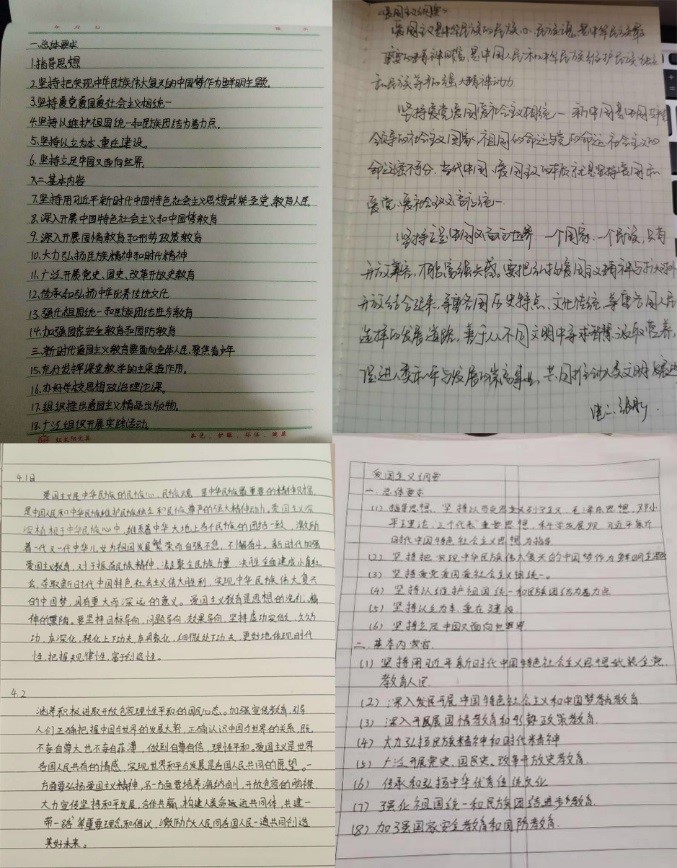 一.总体要求
1.指导思想
2.坚持把实现中华民族伟大复兴的中国梦作为鲜明主题.
3.坚持爱党爱国爱社会主义相统一
4.坚持以维护祖国统一和民族团结为着力点.
5.坚持以立为本,重在建设.
6.坚持立足中国又面向世界.
二.基本内容
7.坚持用习近平新时代中国特色社会主义思想武装全党,教育人民
8.深入开展中国特色社会主义和中国梦教育
9.深入开展国情教育和形势政策教育
10.大力弘扬民族精神和时代精神
11.广泛开展党史、国史、改革开放史教育
12.传承和弘扬中华优秀传统文化
13.强化祖国统一和民族团结进步教育
14.加强国家安全教育和国防教育
三.新时代爱国主义教育要面向全体人民,聚焦青少年
15.充分发挥课堂教学的主渠道作用.
16.办好学校思想政治理论课.
17.组织推出爱国主义精品出版物.
18.广泛组织开展实践活动.
爱国主义纲要
爱国主义是中华民族的民族心、民族魂,是中华民族
重要的精神财富,是中国人民和中华民族维护民族独立
和民族尊严的强大精神动力
坚持爱党爱国爱社会主义相统一 新中国是中国共产党
领导的社会主义国家,祖国的命运与党的命运、社会主义的
命运密不可分.当代中国,爱国主义的本质就是坚持爱国和
爱党、爱社会主义高度统一
坚持立足中国又面向世界 一个国家、一个民族,只有
开放兼容,才能富强兴盛.要把弘扬爱国主义精神与扩大对外
开放结合起来,尊重各国历史特点、文化传统,尊重各国人民
选择的发展道路,善于从不同文明中寻求智慧、汲取营养,
促进人类和平与发展的崇高事业,共同推动人类文明发展进
4.1日
爱国主义是中华民族的民族心、民族魂,是中华民族最重要的精神财富,
是中国人民和中华民族维护民族独立和民族尊严的强大精神动力,爱国主义
深深植根于中华民族心中,维系着中华大地上各个民族的团结统一,激励
着一代又一代中华儿女为祖国发展繁荣而自强不息、不懈奋斗.新时代加强
爱国主义教育,对于振奋民族精神,凝聚全民族力量,决胜全面建成小康社
会,夺取新时代中国特色社会主义伟大胜利,实现中华民族伟大复兴
的中国梦,具有重大而深远的意义.爱国主义教育是思想的洗礼、精
神的熏陶,要坚持目标导向、问题导向、效果导向,坚持虚功实做、久久为
功,在深化、转化上下功夫,在具象化、细微处下功夫,更好地体现时代
性,把握规律性,富于创造性.
4.2
涵养积极进取开放包容理性平和的国民心态.加强宣传教育,引导
人们正确把握中国与世界的发展大势,正确认识中国与世界的关系,既
不妄自尊大也不妄自菲薄,做到自尊自信、理性平和.爱国主义是世界
各国人民共有的情感,实现世界和平与发展是各国人民共同的愿望.一
方面要弘扬爱国主义精神,另一方面要培养海纳百川、开放包容的胸襟,
大力宣传坚持和平发展、合作共赢、构建人类命运共同体、共建一
带一路等重要理念和倡议,激励广大人民同各国人民一道共同创造
美好未来.
爱国主义纲要
一.总体要求
(1)指导思想,坚持以马克思主义列宁主义、毛泽东思想,邓小
平理论,三个代表重要思想,科学发展观,习近平新
时代中国特色社会主义思想为指导
(2)坚持把实现中华民族伟大复兴的中国梦作为鲜明主题
(3)坚持爱党爱国爱社会主义相统一.
(4)坚持以维护祖国统一和民族团结为着力点
(5)坚持以立为本,重在建设
(6)坚持立足中国又面向世界
二.基本内容.
(1)坚持用习近平新时代中国特色社会主义思想武装全党,
教育人民
(2)深入发展开展中国特色社会主义和中国梦教育教育
(3)深入开展国情教育和形势政策教育.
(4)大力弘扬民族精神和时代精神
(5)广泛开展党史、国史、改革开放史教育.
(6)传承和弘扬中华优秀传统文化
(7)强化祖国统一和民族团结进步教育
(8)加强国家安全教育和国防教育.